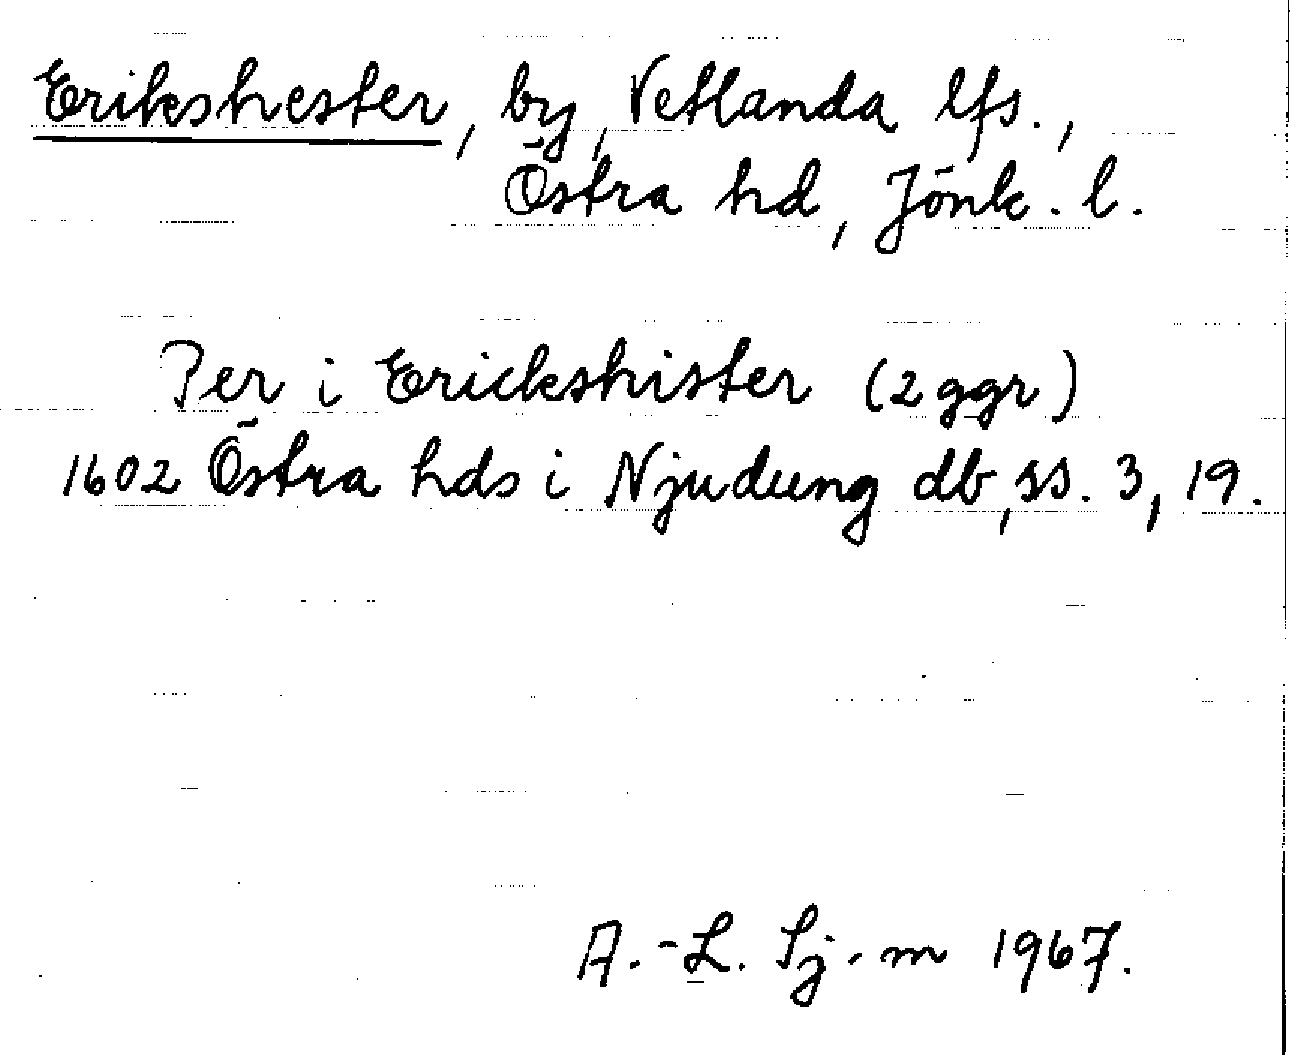 Erikshester, by, Vetlanda lfs.,
Östra hd, Jönk. l.
Per i Erickshister (2 ggr)
1602 Östra hds i Njudung db, ss. 3, 19.
A.-L. Sj.m 1967.